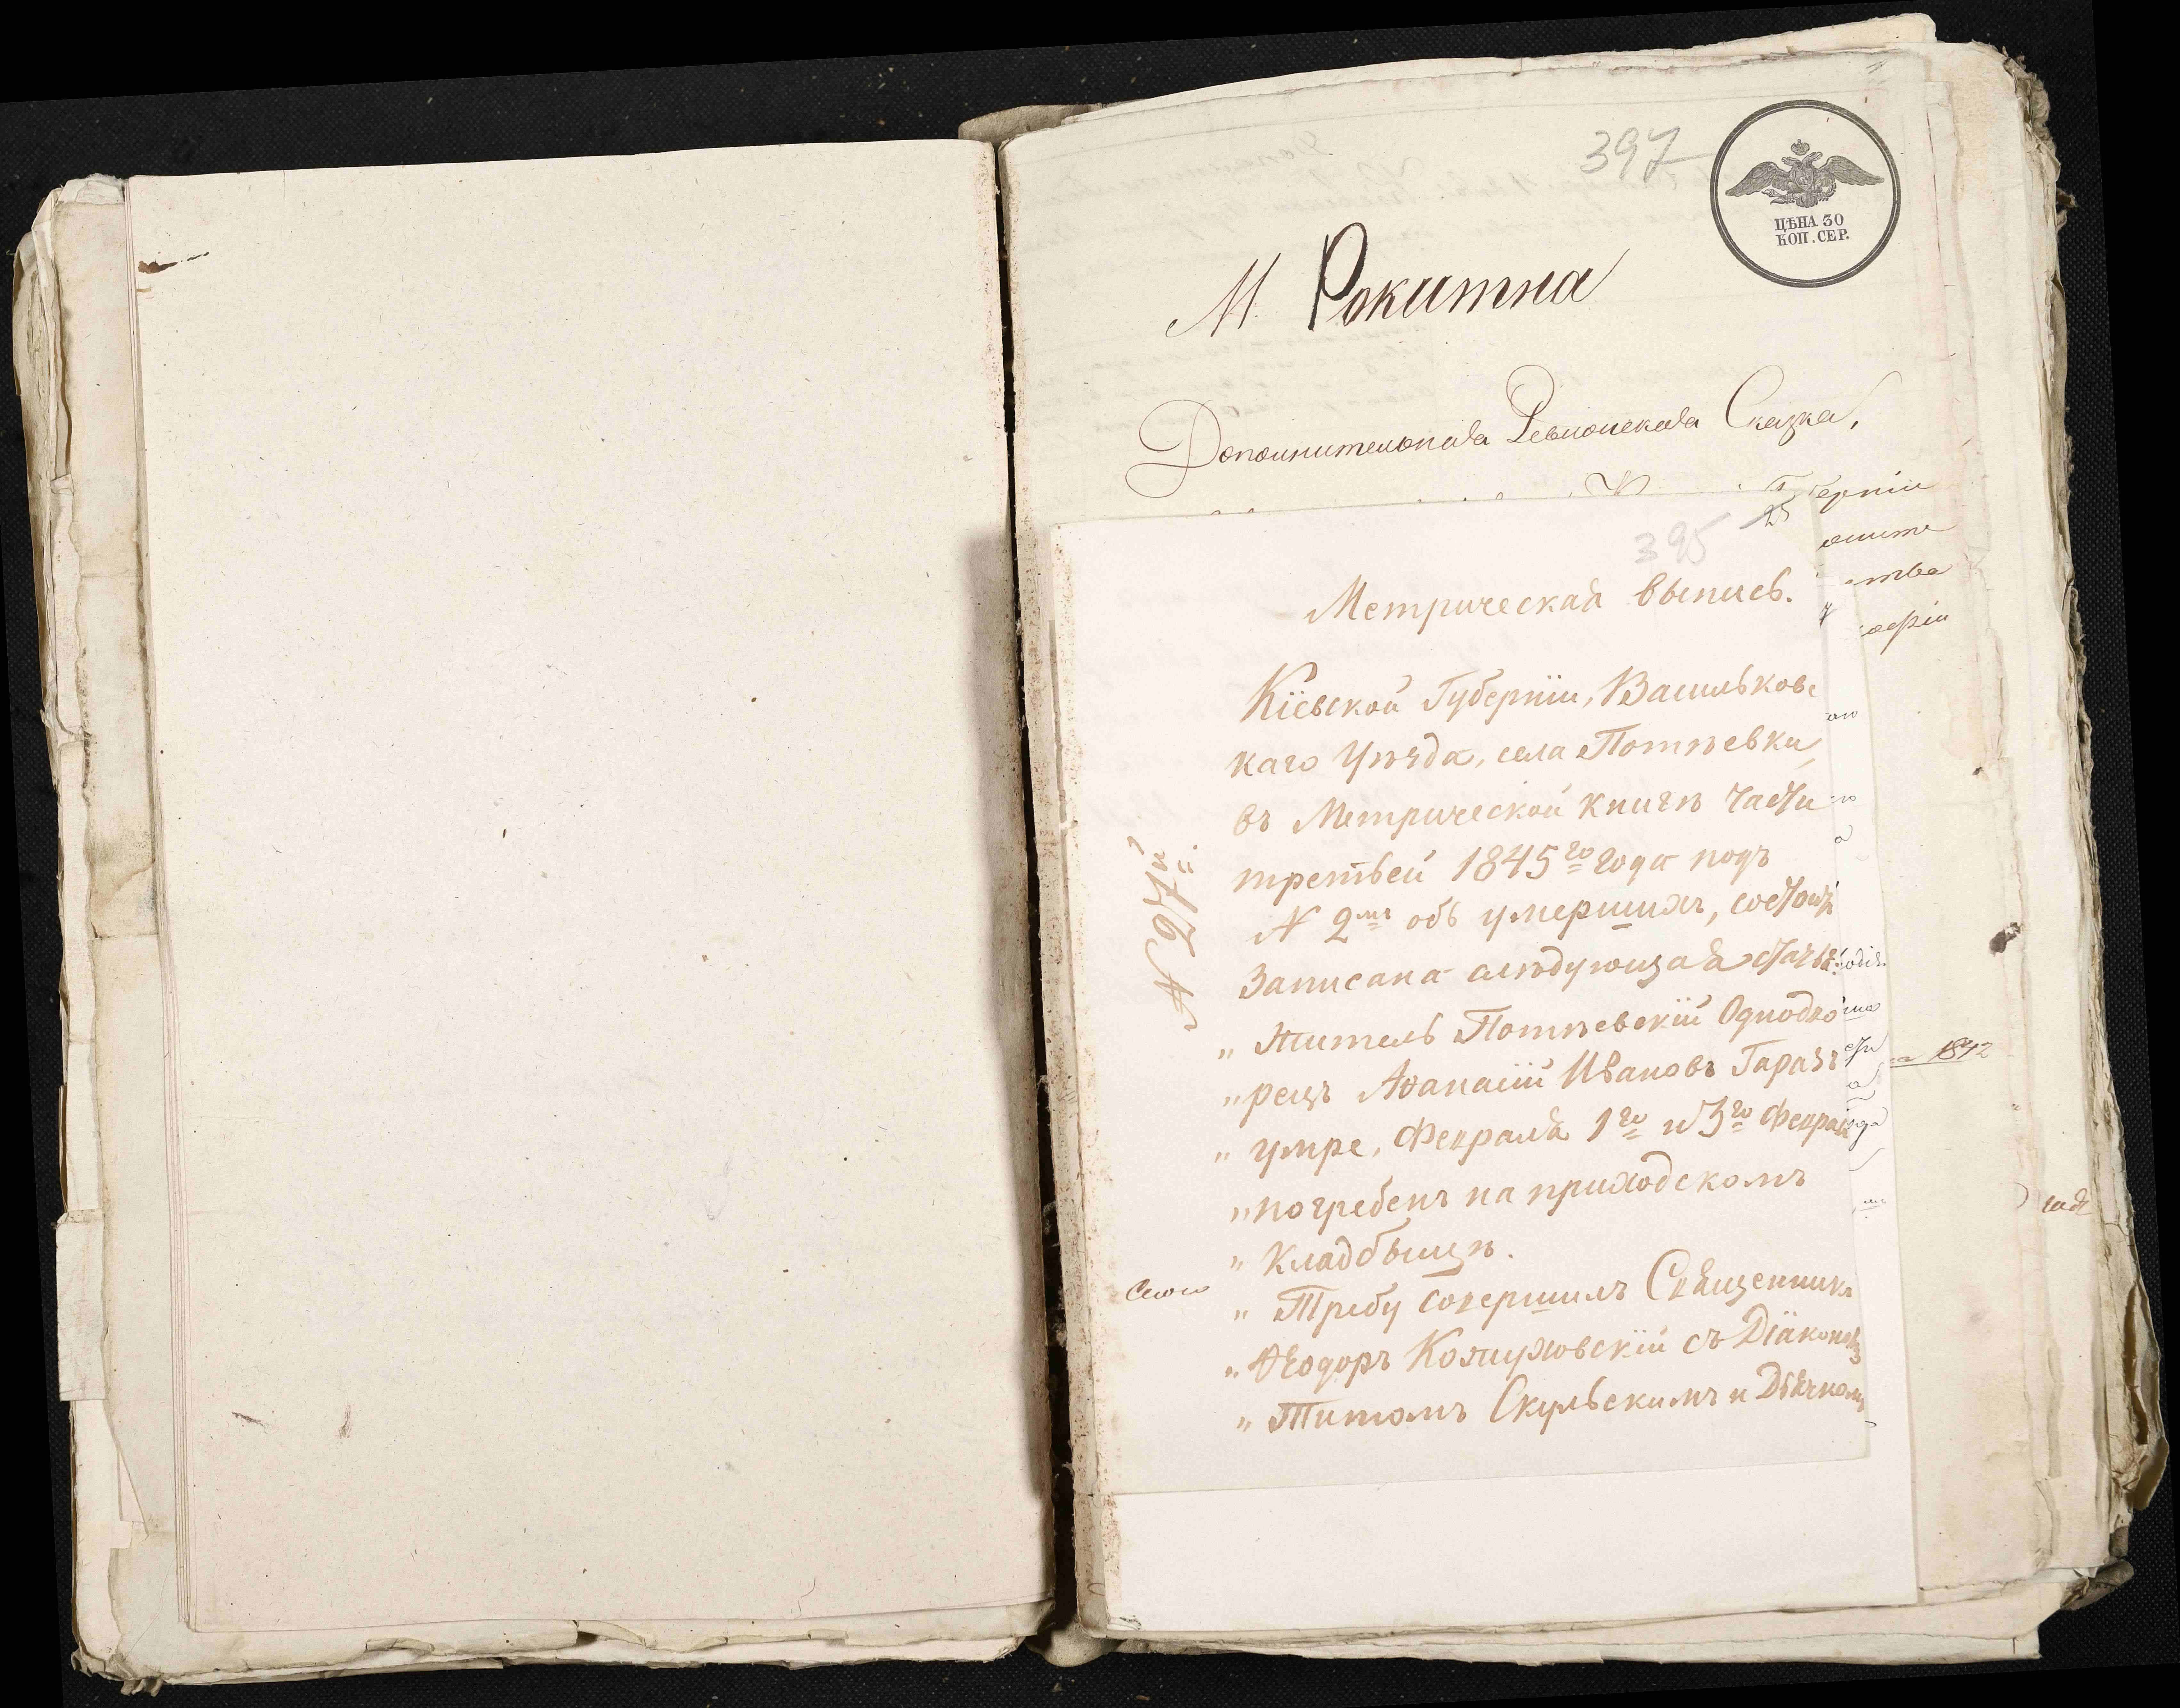 397
ЦѢНА 30
КОП. СЕР.
М. Рокитна
Дополнительная Ревизская Сказка,
395
25
Метрическая выпись.
Кіевской Губерніи, Васильковс
каго Уѣзда, села Потѣевки,
въ Метрической книгѣ части
третьей 1845го года подъ
N 2мъ объ умершихъ, состоитъ
Записана слѣдующая статья:
„ Житель Потѣевскій Однодво
„ рецъ Аѳанасій Ивановъ Гаразъ
„ умре, Февраля 1го и 3го Февраля
„ погребенъ на приходскомъ
„ Кладбыщѣ.
„ Требу совершилъ Священникъ
„ Ѳеодоръ Кожуховскій съ Діакономъ
„ Титомъ Скульскимъ и Дьячкомъ
N 27й
1842